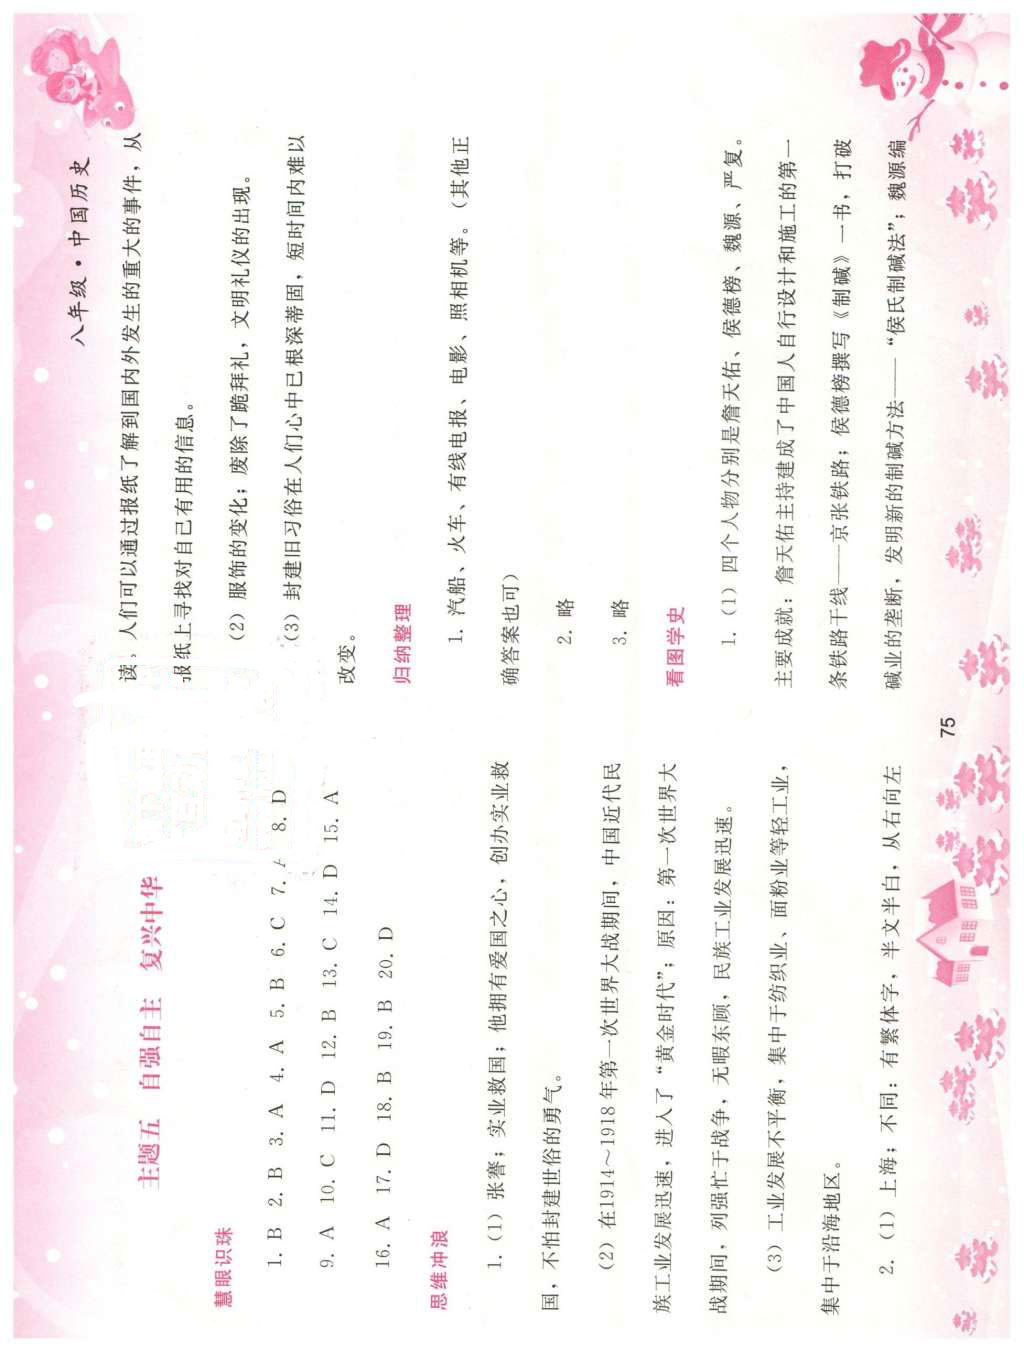 八年级·中国历史
主题五 自强自主 复兴中华
慧眼识珠
1. B 2. B 3. A 4. A 5. B 6. C 7. A 8. D
9. A 10. C 11. D 12. B 13. C 14. D 15. A
16. A 17. D 18. B 19. B 20. D
思维冲浪
1. (1) 张謇；实业救国；他拥有爱国之心，创办实业救
国，不怕封建世俗的勇气。
(2) 在1914～1918年第一次世界大战期间，中国近代民
族工业发展迅速，进入了“黄金时代”；原因：第一次世界大
战期间，列强忙于战争，无暇东顾，民族工业发展迅速。
(3) 工业发展不平衡，集中于纺织业、面粉业等轻工业，
集中于沿海地区。
2. (1) 上海；不同：有繁体字，半文半白，从右向左
读，人们可以通过报纸了解到国内外发生的重大的事件，从
报纸上寻找对自己有用的信息。
(2) 服饰的变化；废除了跪拜礼，文明礼仪的出现。
(3) 封建旧习俗在人们心中已根深蒂固，短时间内难以
改变。
归纳整理
1. 汽船、火车、有线电报、电影、照相机等。（其他正
确答案也可）
2. 略
3. 略
看图学史
1. (1) 四个人物分别是詹天佑、侯德榜、魏源、严复。
主要成就：詹天佑主持建成了中国人自行设计和施工的第一
条铁路干线——京张铁路；侯德榜撰写《制碱》一书，打破
碱业的垄断，发明新的制碱方法——“侯氏制碱法”；魏源编
75